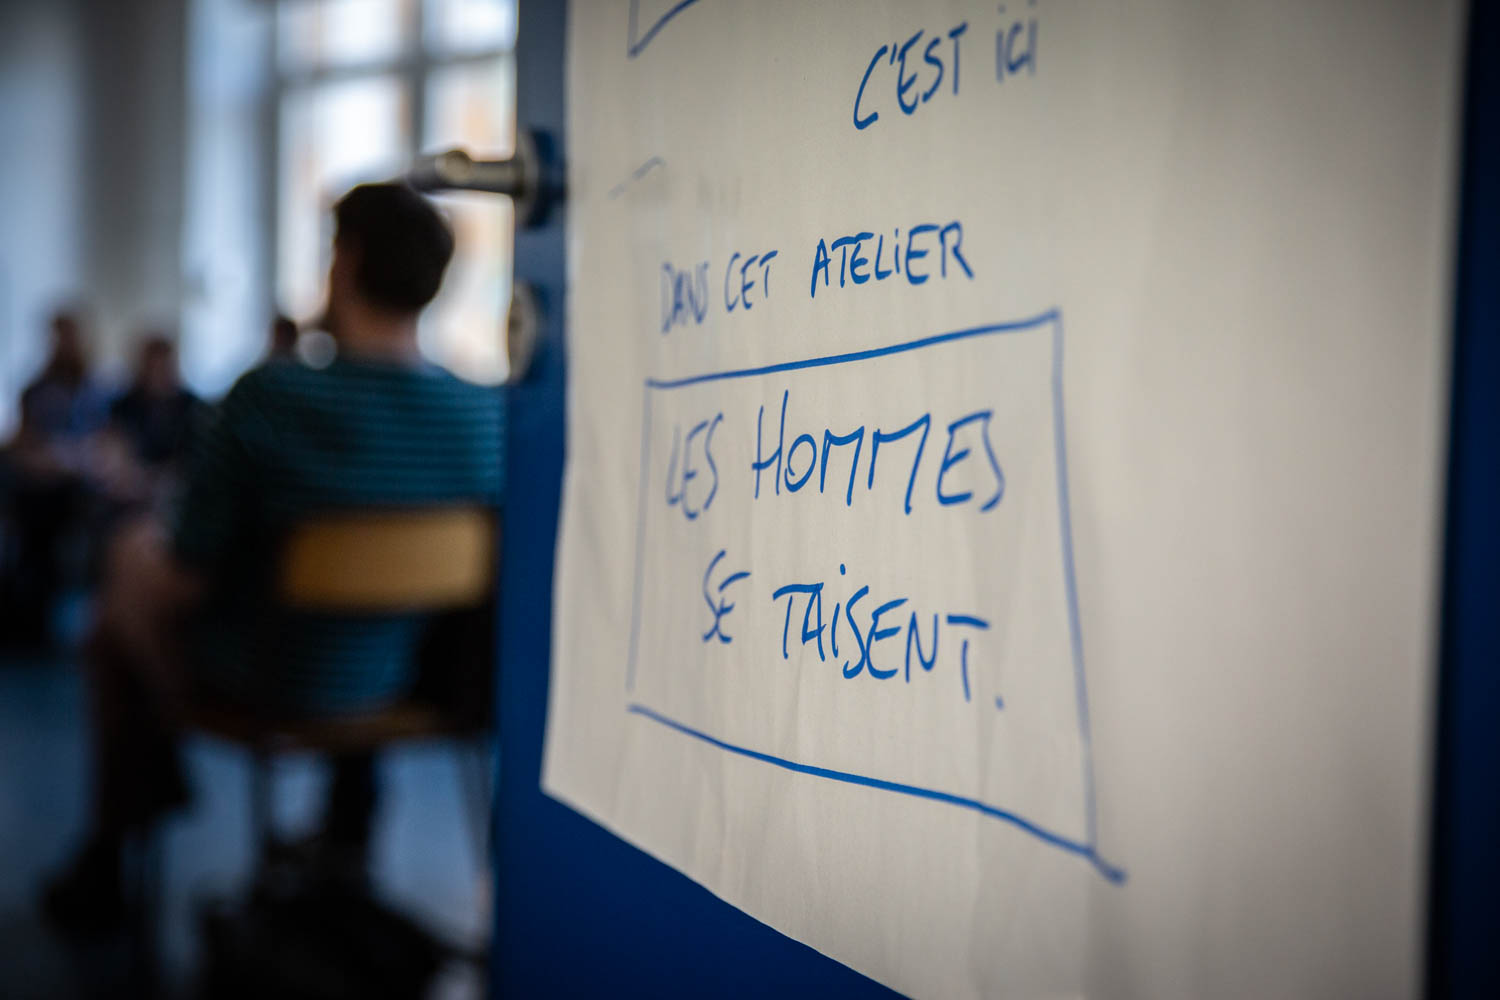 C'EST ICI
DANS CET ATELIER
LES HOMMES
SE TAISENT.